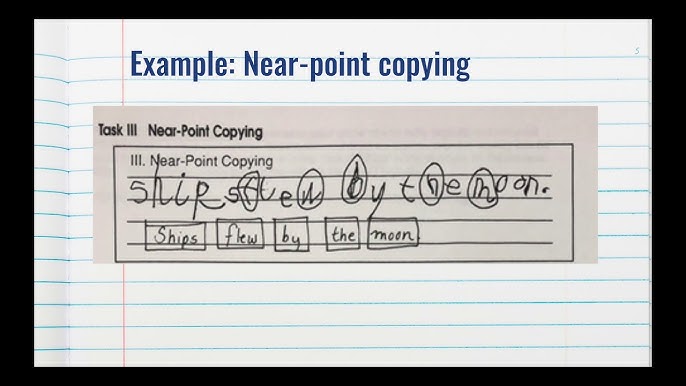 5
Example: Near-point copying
Task III Near-Point Copying
III. Near-Point Copying
ships flew by the moon.
Ships flew by the moon.